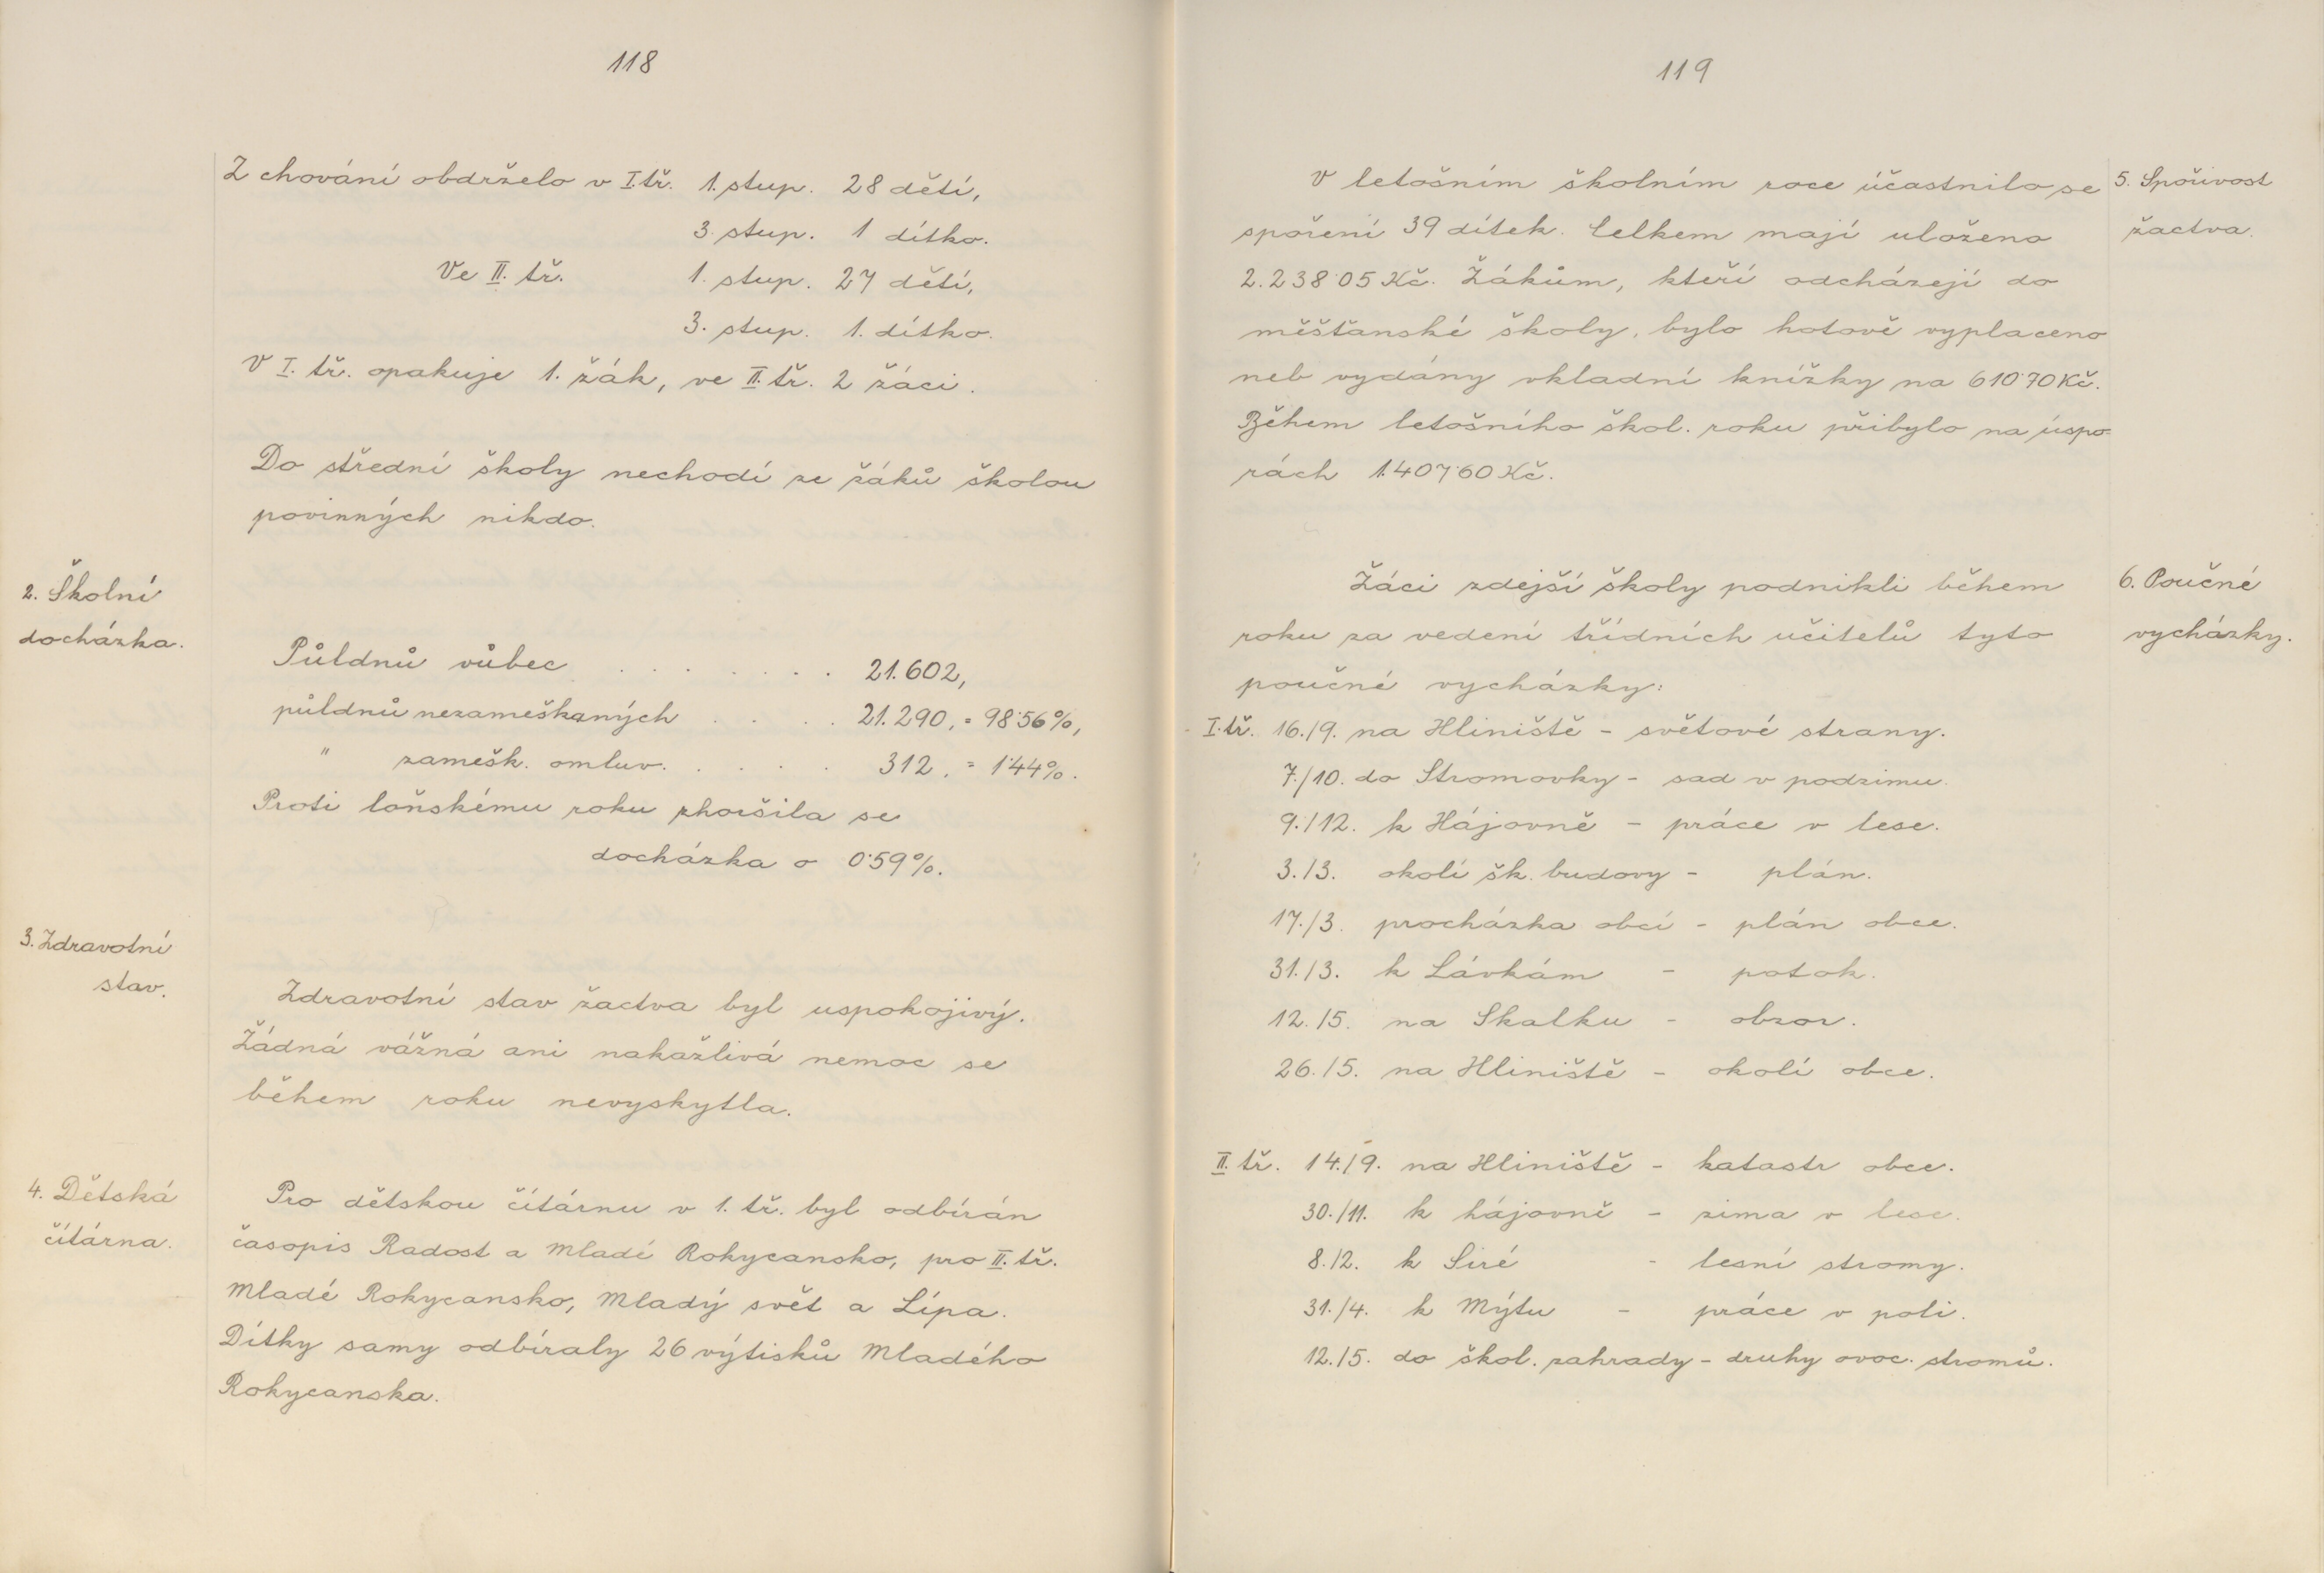 118
Z chování obdrželo v I. tř. 1. stup. 28 dětí,
3. stup. 1 dítko.
Ve II. tř. 1. stup. 27 dětí,
3. stup. 1. dítko.
V I. tř. opakuje 1. žák, ve II. tř. 2 žáci.
Do střední školy nechodí ze žáků školou
povinných nikdo.
2. Školní
docházka.
Půldnů vůbec . . . . . . . 21.602,
půldnů nezameškaných . . . . 21.290, = 98·56%,
" zamešk. omluv. . . . . . 312, = 1·44%.
Proti loňskému roku zhoršila se
docházka o 0·59%.
3. Zdravotní
stav.
Zdravotní stav žactva byl uspokojivý.
Žádná vážná ani nakažlivá nemoc se
během roku nevyskytla.
4. Dětská
čítárna.
Pro dětskou čítárnu v 1. tř. byl odbírán
časopis Radost a Mladé Rokycansko, pro II. tř.
Mladé Rokycansko, Mladý svět a Lípa.
Dítky samy odbíraly 26 výtisků Mladého
Rokycanska.
119
V letošním školním roce účastnilo se
spoření 39 dítek. Celkem mají uloženo
2.238·05 Kč. Žákům, kteří odcházejí do
měšťanské školy, bylo hotově vyplaceno
neb vydány vkladní knížky na 610·70 Kč.
Během letošního škol. roku přibylo na úspo-
rách 1.407·60 Kč.
5. Spořivost
žactva.
Žáci zdejší školy podnikli během
roku za vedení třídních učitelů tyto
poučné vycházky:
6. Poučné
vycházky.
I. tř. 16./9. na Hliniště - světové strany.
7./10. do Stromovky - sad v podzimu.
9./12. k Hájovně - práce v lese.
3./3. okolí šk. budovy - plán.
17./3. procházka obcí - plán obce.
31./3. k Lávkám - potok.
12./5. na Skalku - obzor.
26./5. na Hliniště - okolí obce.
II. tř. 14./9. na Hliniště - katastr obce.
30./11. k hájovně - zima v lese.
8./2. k Siré - lesní stromy.
31./4. k Mýtu - práce v poli.
12./5. do škol. zahrady - druhy ovoc. stromů.